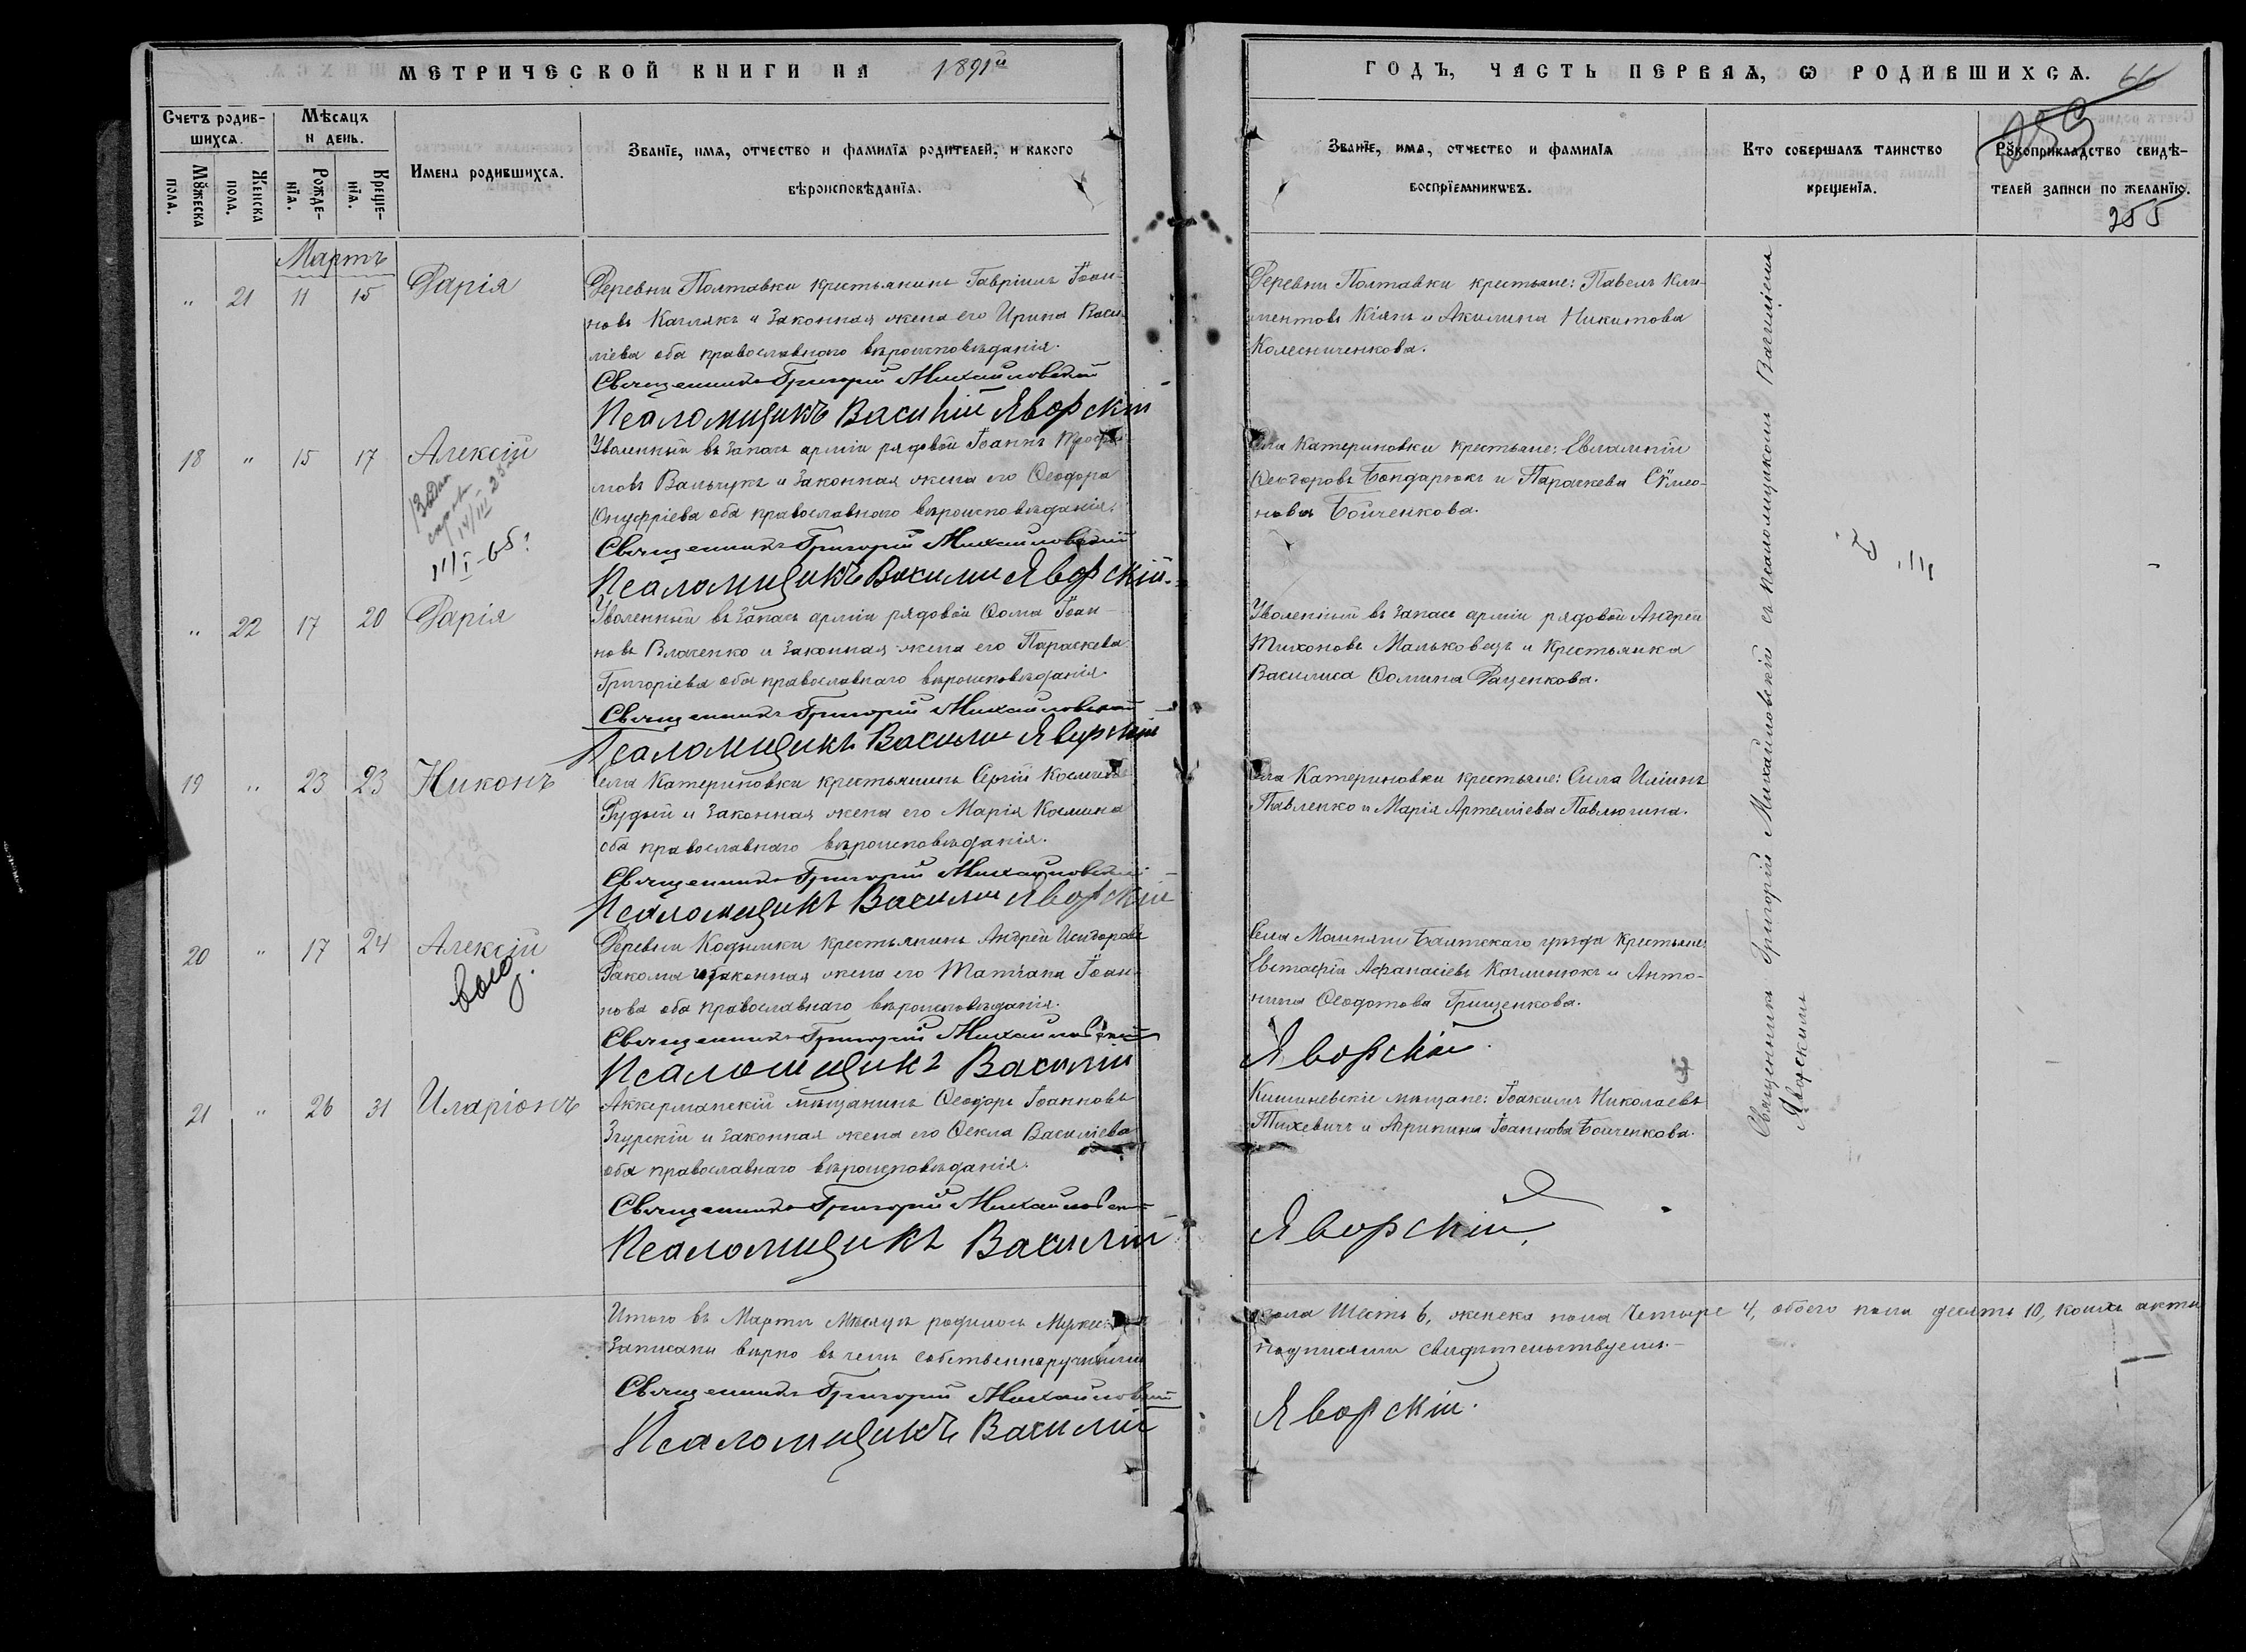 МЕТРИЧЕСКОЙ КНИГИ НА 1891й
ГОДЪ, ЧАСТЬ ПЕРВАѦ, Ѡ РОДИВШИХСѦ. 66
Счетъ родив-
шихсѧ.
Мѣсѧцъ
и день.
Мꙋжеска
пола.
Женска
пола.
Рожде-
нїѧ.
Креще-
нїѧ.
Имена родившихсѧ.
Званїе, имѧ, отчество и фамилїѧ родителей, и какого
вѣроисповѣданїѧ.
Званїе, имѧ, отчество и фамилїѧ
воспрїемникѡвъ.
Кто совершалъ таинство
крещенїѧ.
Рꙋкоприкладство свидѣ-
телей записи по желанїю.
255
Мартъ
" 21 11 15 Дарія
Деревни Полтавки крестьянинъ Гавріилъ Іоан-
новъ Каглякъ и законная жена его Ирина Васи-
ліева оба православнаго вѣроисповѣданія.
Священникъ Григорій Михайловскій
Псаломщикъ Василій Яворскій
Деревни Полтавки крестьяне: Павелъ Кли-
ментовъ Кіянъ и Акилина Никитова
Колесниченкова.
18 " 15 17 Алексій
14/III
Уволенный въ запасъ арміи рядовой Іоаннъ Трофи-
мовъ Вальчукъ и законная жена его Ѳеодора
Онуфріева оба православнаго вѣроисповѣданія.
Священникъ Григорій Михайловскій
Псаломщикъ Василій Яворскій.
Села Катериновки крестьяне: Евлампій
Ѳеодоровъ Бондарюкъ и Параскева Сѵмео-
нова Бойченкова.
" 22 17 20 Дарія
Уволенный въ запасъ арміи рядовой Ѳома Іоан-
новъ Власенко и законная жена его Параскева
Григоріева оба православнаго вѣроисповѣданія.
Священникъ Григорій Михайловскій
Псаломщикъ Василій Яворскій
Уволенный въ запасъ арміи рядовой Андрей
Тихоновъ Мальковецъ и крестьянка
Василиса Ѳомина Даценкова.
19 " 23 23 Никонъ
Села Катериновки крестьянинъ Сергій Косминъ
Рудый и законная жена его Марія Космина
оба православнаго вѣроисповѣданія.
Священникъ Григорій Михайловскій
Псаломщикъ Василій Яворскій
Села Катериновки крестьяне: Сила Иліинъ
Павленко и Марія Артеміева Павлюгина.
20 " 17 24 Алексій
Деревни Кодымки крестьянинъ Андрей Исидоровъ
Ракома и законная жена его Татіана Іоан-
нова оба православнаго вѣроисповѣданія.
Священникъ Григорій Михайловскій
Псаломщикъ Василій
Села Мошняги Балтскаго уѣзда крестьяне:
Евстафій Аѳанасіевъ Каглинюкъ и Анто-
нина Ѳеодотова Грищенкова.
Яворскій.
21 " 26 31 Иларіонъ
Аккерманскій мѣщанинъ Ѳеодоръ Іоанновъ
Згурскій и законная жена его Ѳекла Василіева
оба православнаго вѣроисповѣданія.
Священникъ Григорій Михайловскій
Псаломщикъ Василій
Кишиневскіе мѣщане: Іоакимъ Николаевъ
Тихевичъ и Агрипина Іоаннова Бойченкова.
Яворскій.
Священникъ Григорій Михайловскій съ псаломщикомъ Василіемъ
Яворскимъ
Итого въ Мартѣ мѣсяцѣ родилось мужеска пола шесть 6, женска пола четыре 4, обоего пола десять 10, коихъ акты
записаны вѣрно въ чемъ собственноручными подписями свидѣтельствуемъ.
Священникъ Григорій Михайловскій
Псаломщикъ Василій Яворскій.